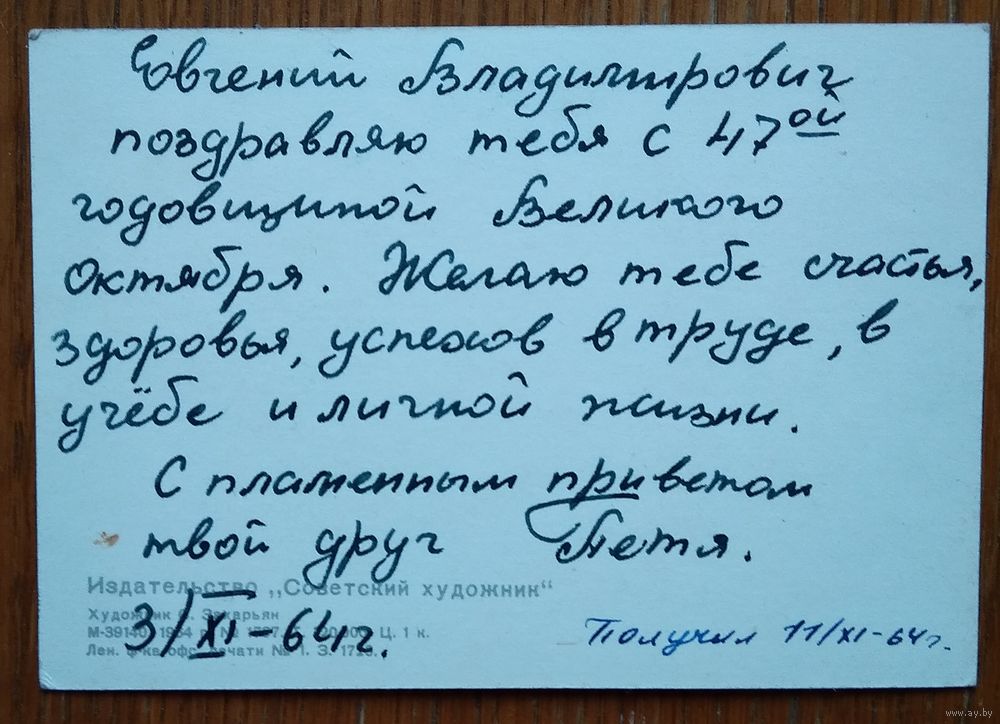 Евгений Владимирович
поздравляю тебя с 47ой
годовщиной Великого
Октября. Желаю тебе счастья,
здоровья, успехов в труде, в
учёбе и личной жизни.
С пламенным приветом
твой друг Петя.
Издательство „Советский художник“
Художник Захарьян
3/XI-64г.
М-39140 Ц. 1 к.
Получил 11/XI-64г.
Лен. ф-ка офс. печати № 1. З.
www.ay.by